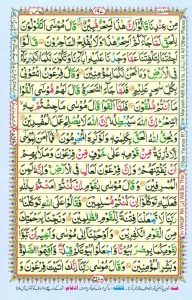 مِنْ عِنْدِنَا قَالُوْٓا اِنَّ هٰذَا لَسِحْرٌ مُّبِيْنٌ قَالَ مُوْسٰٓى اَتَقُوْلُوْنَ
لِلْحَقِّ لَمَّا جَآءَكُمْ اَسِحْرٌ هٰذَا وَلَا يُفْلِحُ السّٰحِرُوْنَ قَالُوْٓا
اَجِئْتَنَا لِتَلْفِتَنَا عَمَّا وَجَدْنَا عَلَيْهِ اٰبَآءَنَا وَتَكُوْنَ لَكُمَا الْكِبْرِيَآءُ فِي
الْاَرْضِ وَمَا نَحْنُ لَكُمَا بِمُؤْمِنِيْنَ وَقَالَ فِرْعَوْنُ ائْتُوْنِيْ
بِكُلِّ سٰحِرٍ عَلِيْمٍ فَلَمَّا جَآءَ السَّحَرَةُ قَالَ لَهُمْ مُّوْسٰٓى اَلْقُوْا مَآ
اَنْتُمْ مُّلْقُوْنَ فَلَمَّآ اَلْقَوْا قَالَ مُوْسٰى مَا جِئْتُمْ بِهِ
السِّحْرُ اِنَّ اللّٰهَ سَيُبْطِلُهٗ اِنَّ اللّٰهَ لَا يُصْلِحُ عَمَلَ الْمُفْسِدِيْنَ
وَيُحِقُّ اللّٰهُ الْحَقَّ بِكَلِمٰتِهٖ وَلَوْ كَرِهَ الْمُجْرِمُوْنَ فَمَآ اٰمَنَ لِمُوْسٰٓى اِلَّا
ذُرِّيَّةٌ مِّنْ قَوْمِهٖ عَلٰى خَوْفٍ مِّنْ فِرْعَوْنَ وَمَلَا۟ئِهِمْ
اَنْ يَّفْتِنَهُمْ وَاِنَّ فِرْعَوْنَ لَعَالٍ فِي الْاَرْضِ وَاِنَّهٗ لَمِنَ
الْمُسْرِفِيْنَ وَقَالَ مُوْسٰى يٰقَوْمِ اِنْ كُنْتُمْ اٰمَنْتُمْ بِاللّٰهِ
فَعَلَيْهِ تَوَكَّلُوْٓا اِنْ كُنْتُمْ مُّسْلِمِيْنَ فَقَالُوْا عَلَى اللّٰهِ تَوَكَّلْنَا
رَبَّنَا لَا تَجْعَلْنَا فِتْنَةً لِّلْقَوْمِ الظّٰلِمِيْنَ وَنَجِّنَا بِرَحْمَتِكَ
مِنَ الْقَوْمِ الْكٰفِرِيْنَ وَاَوْحَيْنَآ اِلٰى مُوْسٰى وَاَخِيْهِ اَنْ تَبَوَّاٰ
لِقَوْمِكُمَا بِمِصْرَ بُيُوْتًا وَّاجْعَلُوْا بُيُوْتَكُمْ قِبْلَةً وَّاَقِيْمُوا الصَّلٰوةَ
وَبَشِّرِ الْمُؤْمِنِيْنَ وَقَالَ مُوْسٰى رَبَّنَآ اِنَّكَ اٰتَيْتَ فِرْعَوْنَ